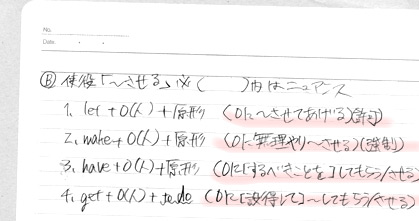 No.
Date
Ⓑ 使役「～させる」※( )内はニュアンス
1. let + O(人) + 原形 (Oに～させてあげる)(許可)
2. make + O(人) + 原形 (Oに無理やり～させる)(強制)
3. have + O(人) + 原形 (Oに[するべきことを]してもらう/させる)
4. get + O(人) + to do (Oに[説得して]～してもらう/させる)